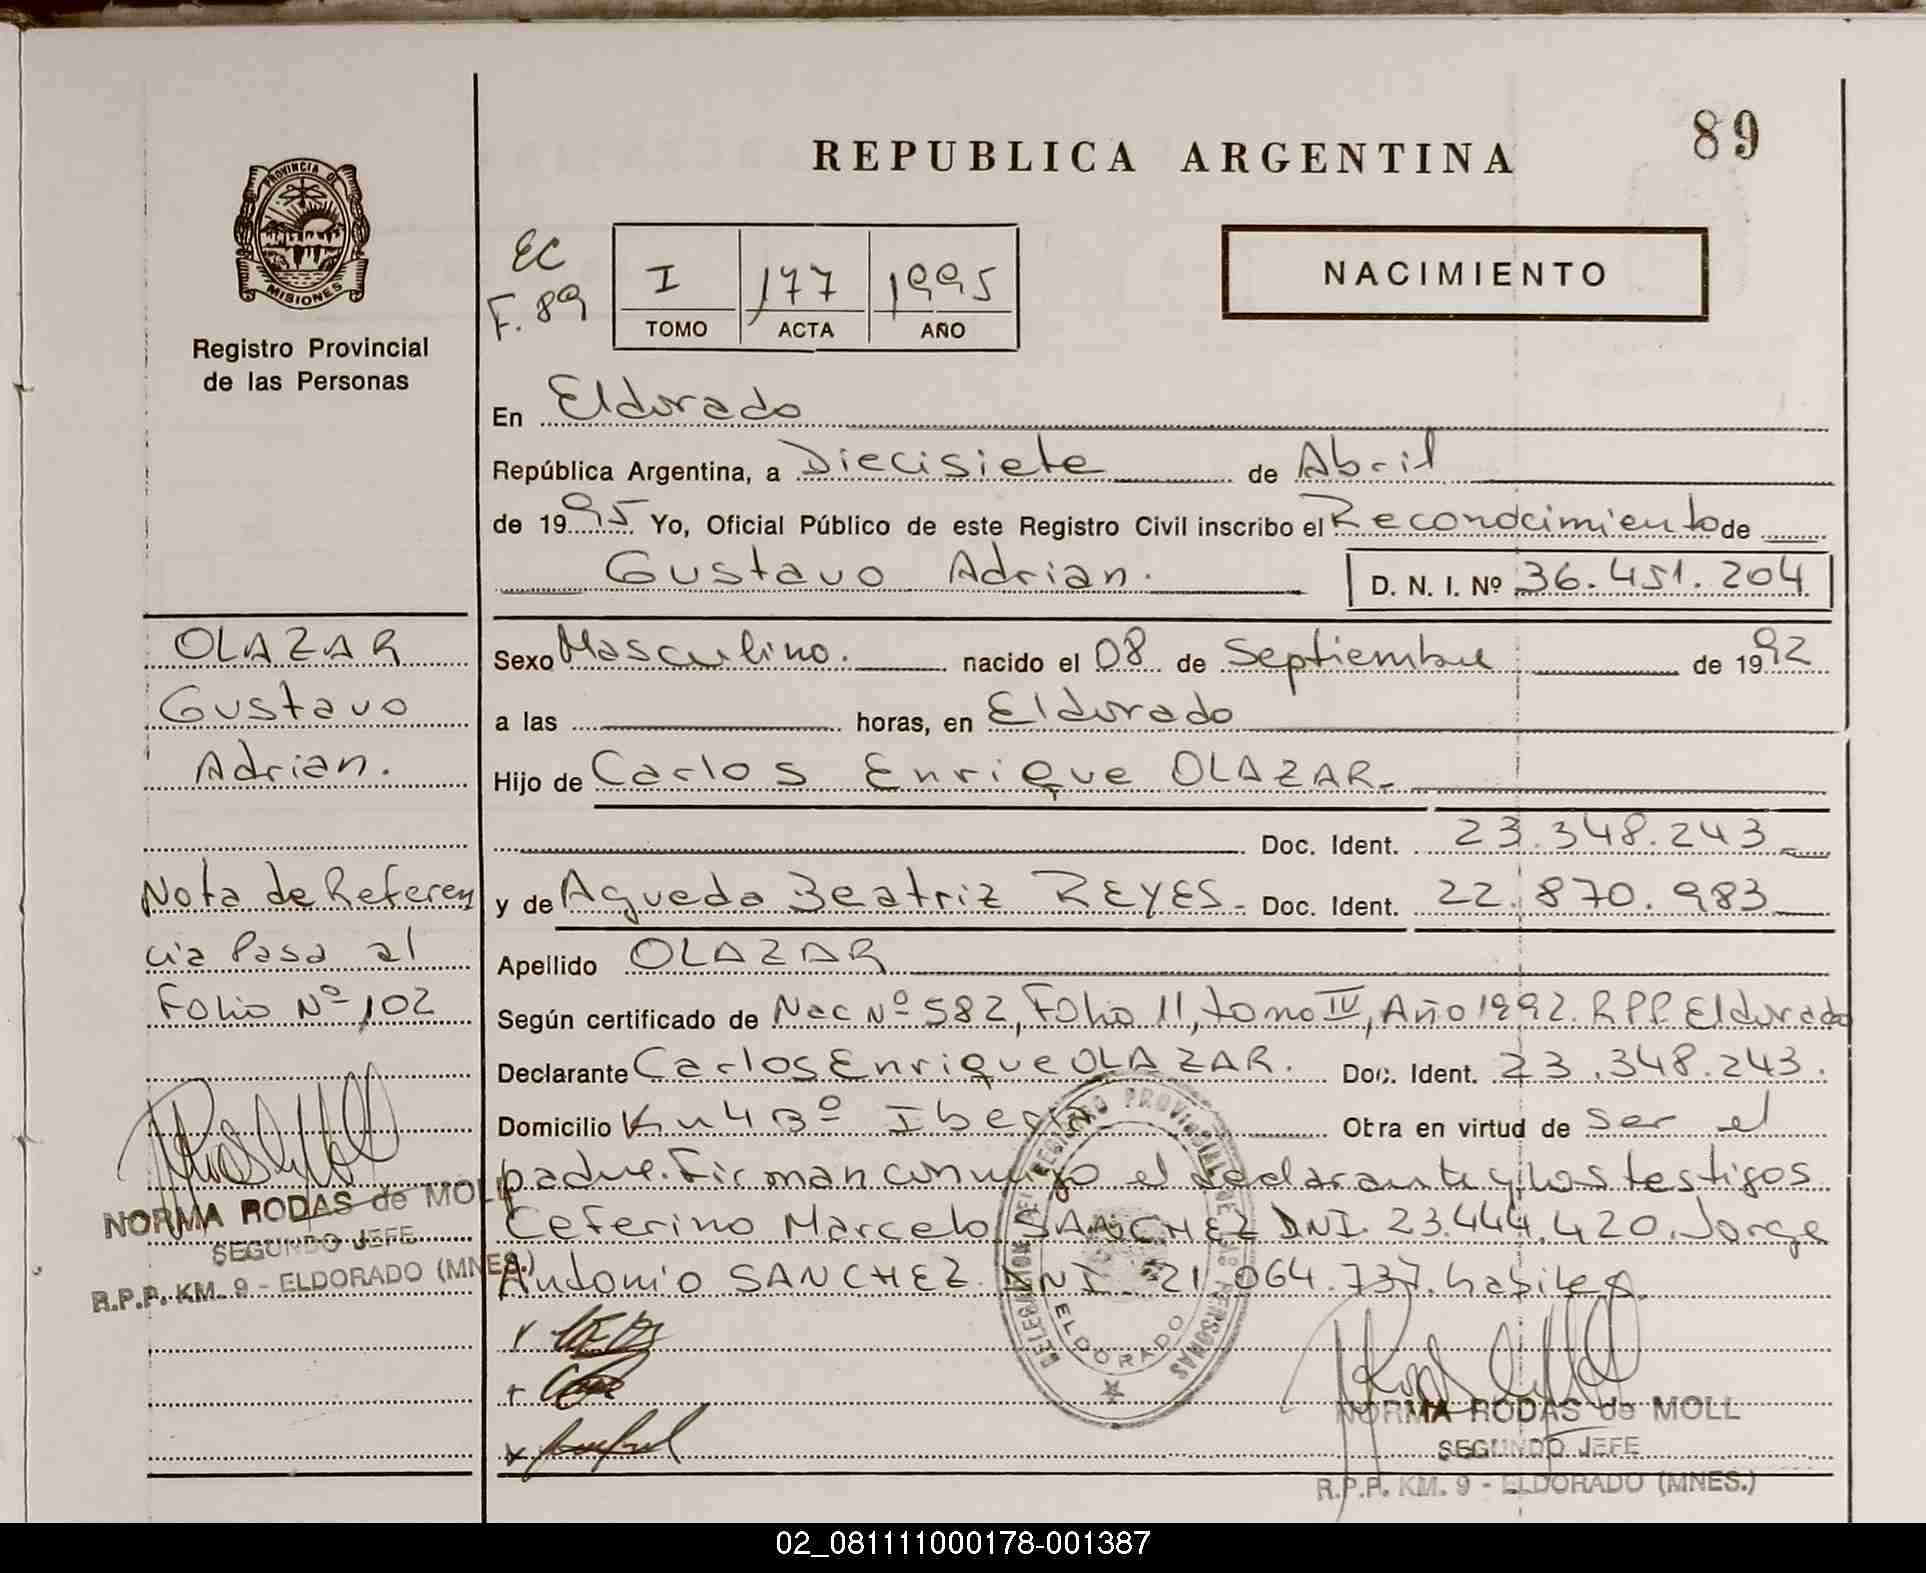 89
REPUBLICA ARGENTINA
PROVINCIA DE
MISIONES
Registro Provincial
de las Personas
EC
F. 89
I 177 1995
TOMO ACTA AÑO
NACIMIENTO
En Eldorado
República Argentina, a Diecisiete de Abril
de 1995 Yo, Oficial Público de este Registro Civil inscribo el Reconocimiento de
Gustavo Adrian. D. N. I. Nº 36.451.204
OLAZAR
Gustavo
Adrian.
Sexo Masculino. nacido el 08 de Septiembre de 1992
a las horas, en Eldorado
Hijo de Carlos Enrique OLAZAR.
Doc. Ident. 23.348.243
y de Agueda Beatriz REYES. Doc. Ident. 22.870.983
Nota de Referen
cia Pasa al
Folio Nº 102
Apellido OLAZAR
Según certificado de Nac Nº 582, Folio 11, tomo IV, Año 1992. RPP. Eldorado
Declarante Carlos Enrique OLAZAR. Doc. Ident. 23.348.243.
Domicilio Km 4 Bº Iberá Otra en virtud de ser el
padre. Firman conmigo el declarante y los testigos
Ceferino Marcelo SANCHEZ DNI. 23.444.420. Jorge
Antonio SANCHEZ. DNI. 21.064.737. habiles.
NORMA RODAS de MOLL
SEGUNDO JEFE
R.P.P. KM. 9 - ELDORADO (MNES.)
DELEGACION DEL REGISTRO PROVINCIAL DE LAS PERSONAS
ELDORADO
NORMA RODAS de MOLL
SEGUNDO JEFE
R.P.P. KM. 9 - ELDORADO (MNES.)
02_081111000178-001387